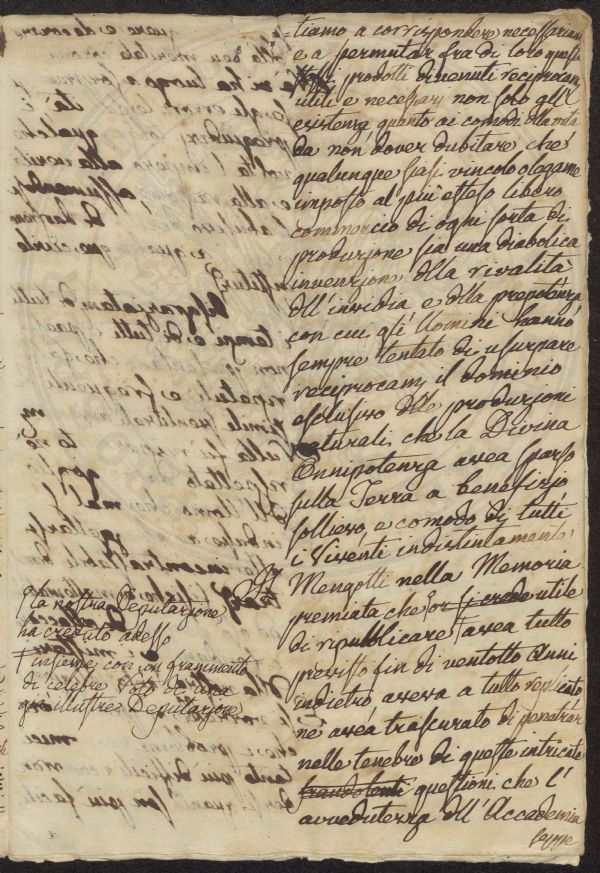 =tiamo a corrispondere necessariam
e a permutar fra di loro questi
stessi prodotti divenuti reciprocam
utili e necessarj non solo all'
esistenza quanto ai comodi dlla vita
da non dover dubitare che
qualunque siasi vincolo o legame
imposto al più esteso libero
commercio di ogni sorta di
produzione sia una diabolica
invenzione dlla rivalità
dll'invidia e dlla prepotenza
con cui gli Uomini hanno
sempre tentato di usurpare
reciprocam, il dominio
esclusivo dlle produzioni
naturali, che la Divina
Onnipotenza avea sparso
sulla Terra a benefizio
sollievo, e comodo di tutti
i Viventi indistintamente.
Mengotti nella Memoria
premiata che or si crede utile
di ripubblicare † avea tutto
previsto fin di ventotto Anni
indietro, aveva a tutto replicato
nè avea trascurato di penetrar
nelle tenebre di queste intricate
fraudolenti questioni che l'
avvedutezza dll'Accademia
la nostra Deputazione
ha creduto adesso
† insieme con un frammento
di celebre Voto di una
più illustre Deputazione